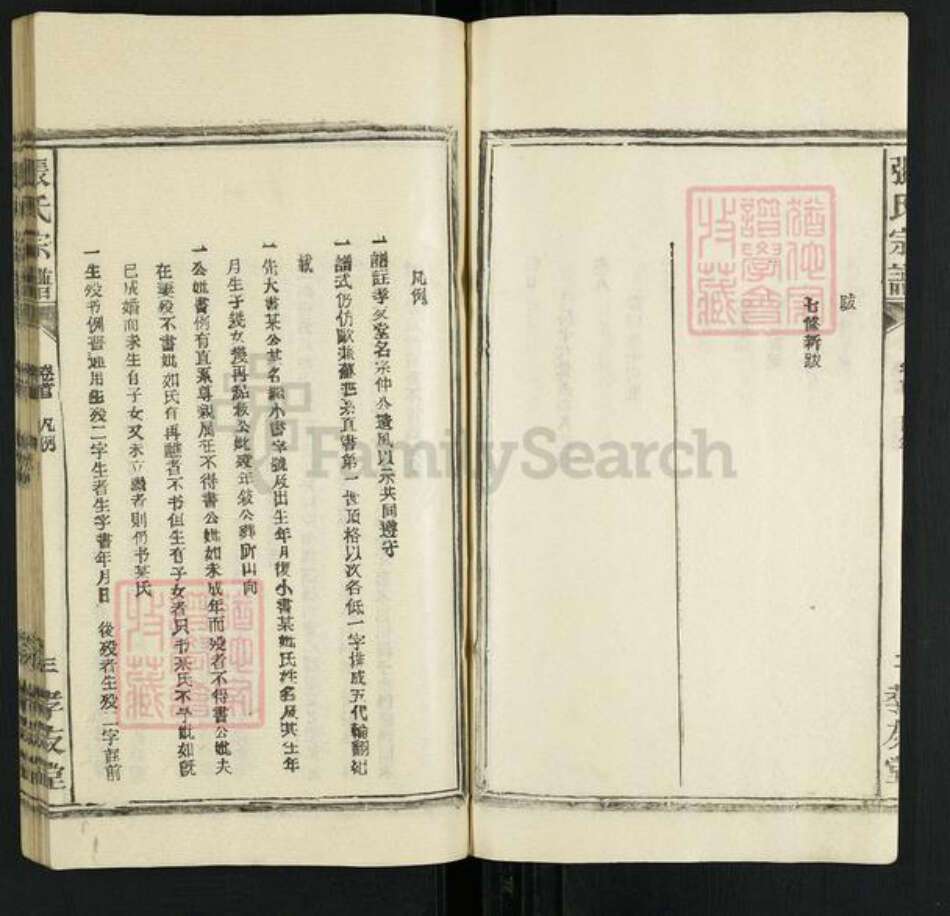 張氏宗譜
跋
七修新跋
孝友堂
凡例
一譜註孝友堂名宗仲公遺風以示共同遵守
一譜式仍仿歐蘇世系直書第一世頂格以次各低一字排成五代輪翻紀
載
一先大書某公某名繼小書字號及出生年月復小書某妣氏姓名及其生年
月生子幾女幾再點敘公妣歿年敘公葬所山向
一公妣書例有直系尊親属在不得書公妣如未成年而殁者不得書公妣夫
在妻殁不書妣如氏有再醮者不书但生有子女者只书某氏不予妣如旣
已成婚而未生育子女又未立嗣者則仍书某氏
一生殁书例普通用生殁二字生者生字書年月日 後殁者生殁二字註前
張氏宗譜
卷首 凡例
三 孝友堂
猶他家譜學會收藏
猶他家譜學會收藏
FamilySearch